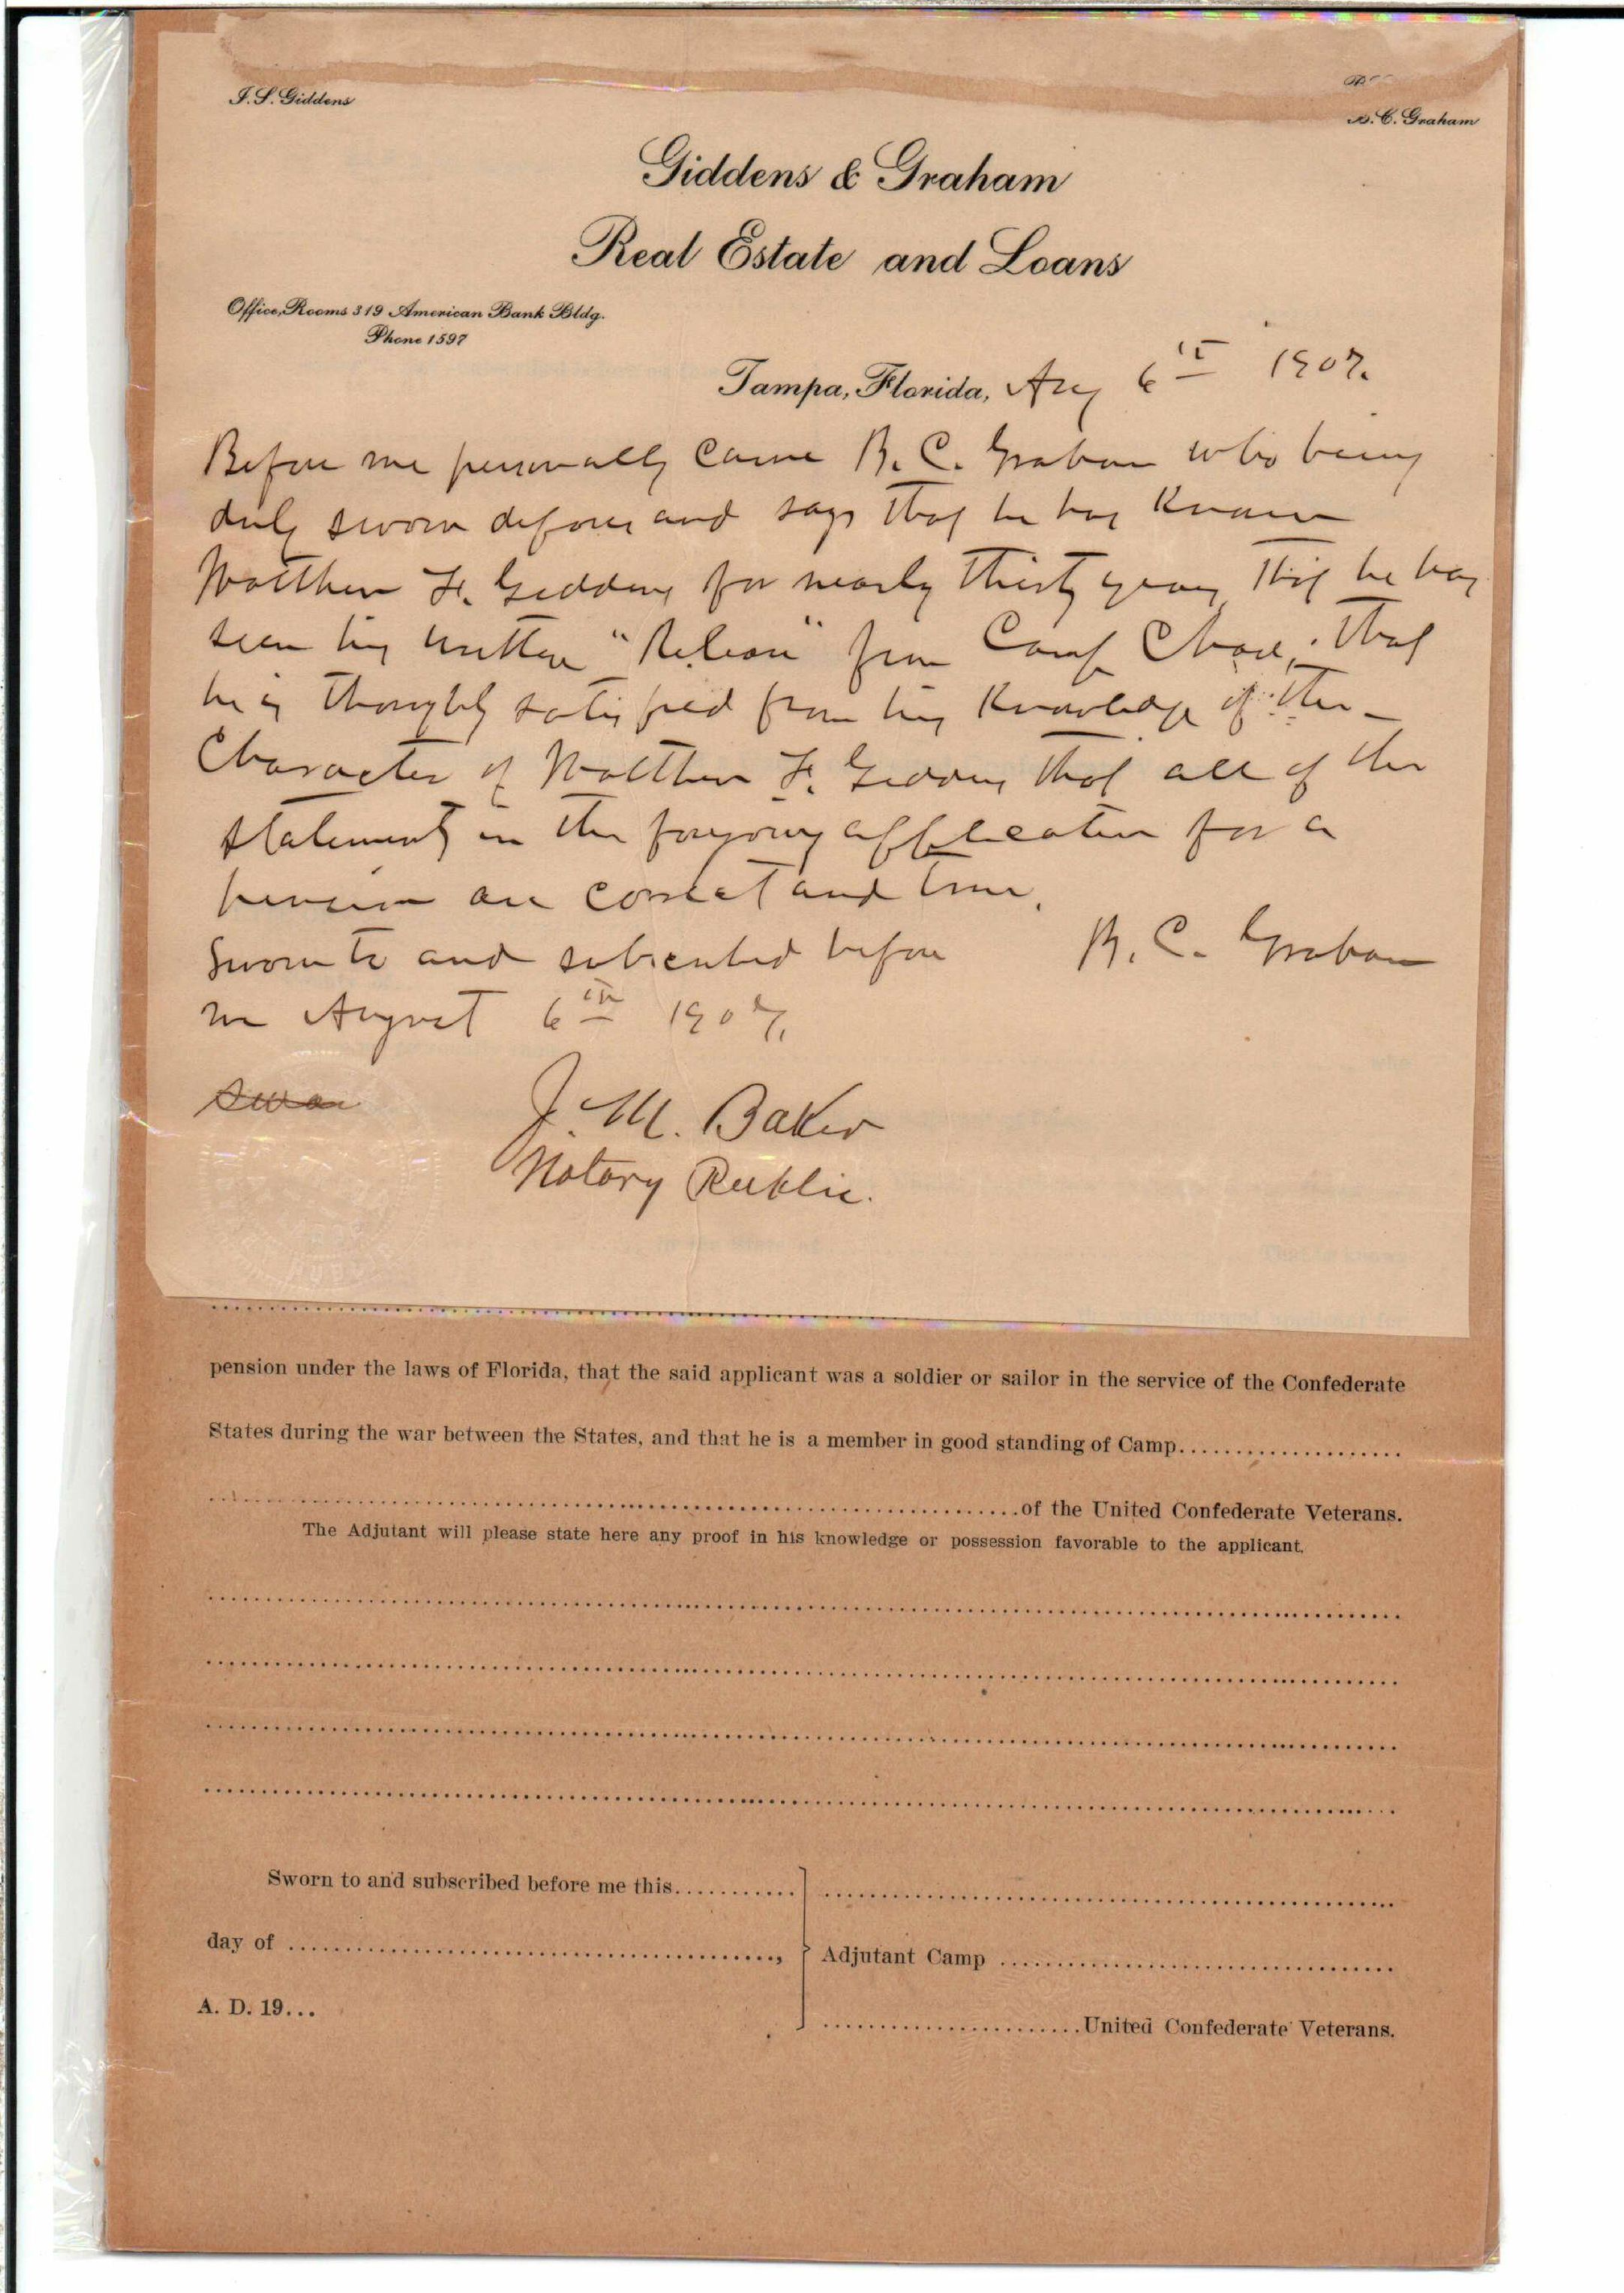 I. S. Giddens
B. C. Graham
Giddens & Graham
Real Estate and Loans
Office, Rooms 319 American Bank Bldg.
Phone 1597
Tampa, Florida, Aug 6th 1907.
Before me personally came B. C. Graham who being
duly sworn deposes and says that he has known
Matthew F. Giddens for nearly thirty years, that he has
seen his written "Release" from Camp Chase, that
he is thoroughly satisfied from his knowledge of the
Character of Matthew F. Giddens that all of the
statements in the foregoing application for a
pension are correct and true.
B. C. Graham
Sworn to and subscribed before
me August 6th 1907.
J. M. Baker
Notary Public.
pension under the laws of Florida, that the said applicant was a soldier or sailor in the service of the Confederate
States during the war between the States, and that he is a member in good standing of Camp
of the United Confederate Veterans.
The Adjutant will please state here any proof in his knowledge or possession favorable to the applicant.
Sworn to and subscribed before me this
day of ,
Adjutant Camp
A. D. 19...
United Confederate Veterans.